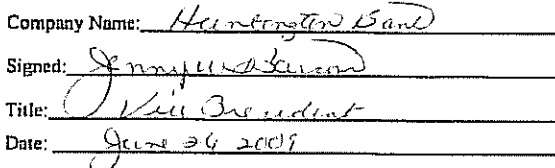 Company Name: Huntington Bank
Signed:
Title: Vice President
Date: June 26 2009